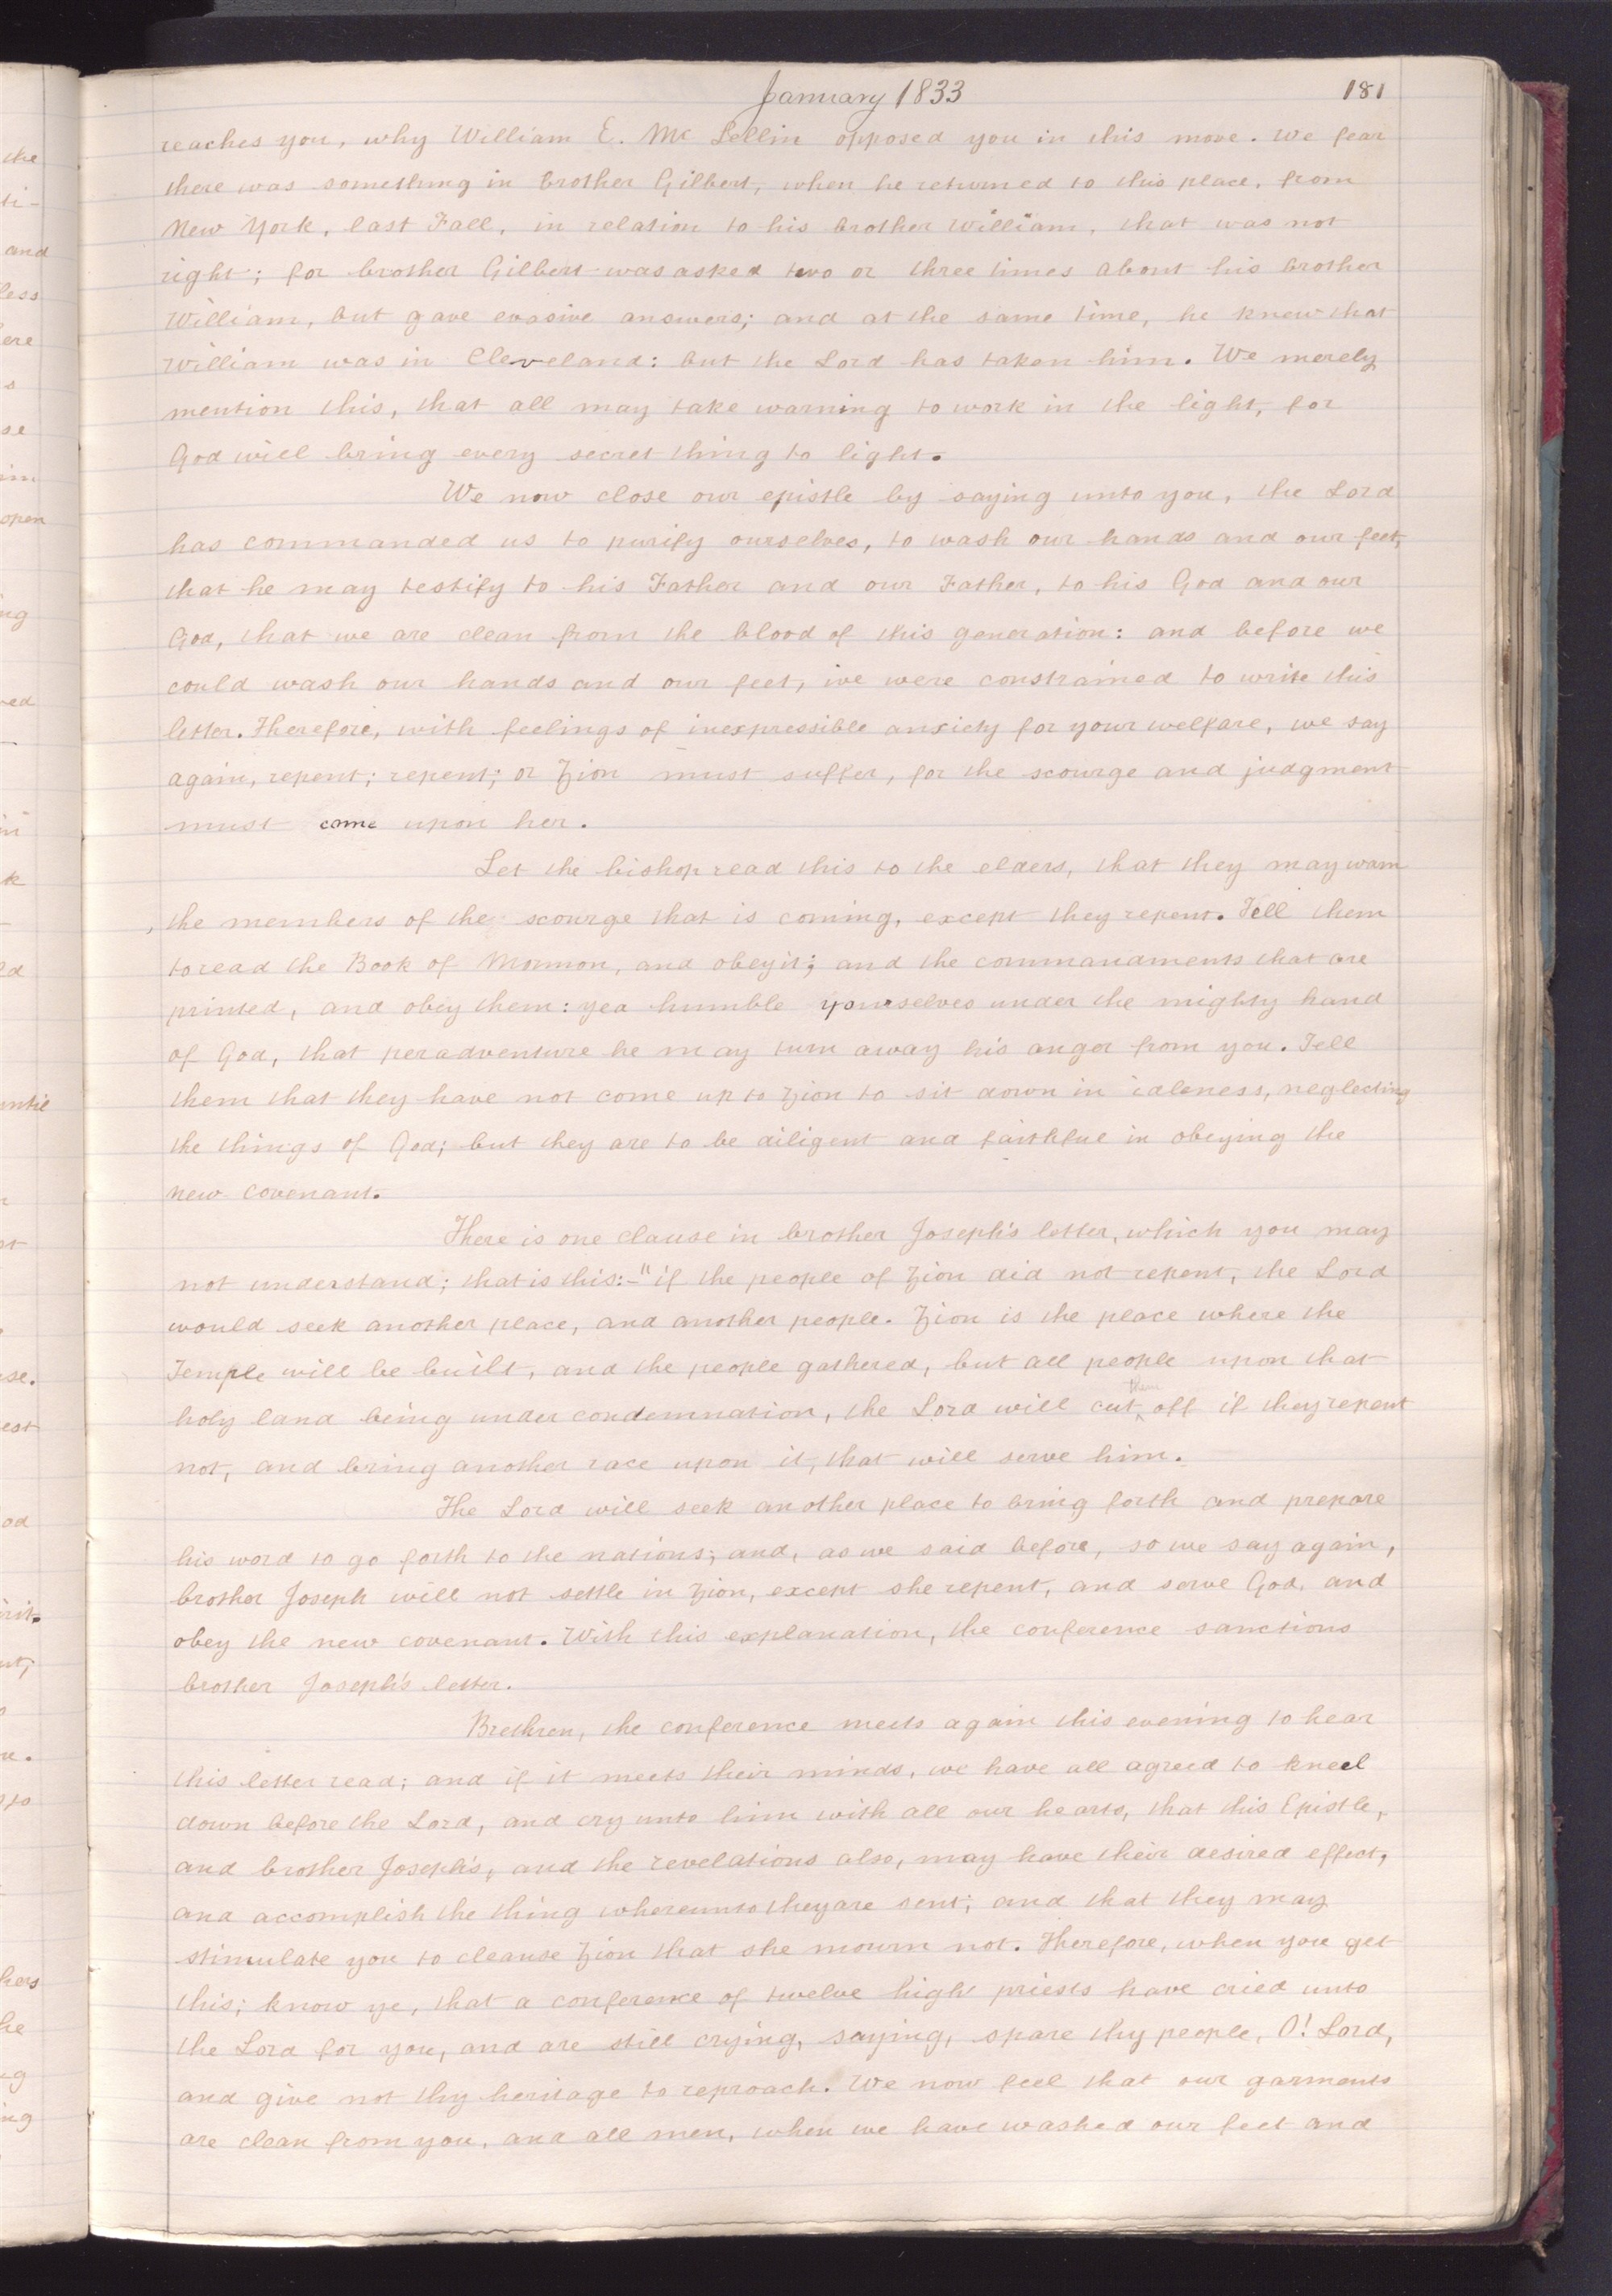 January 1833 181
reaches you, why William E. Mc Lellin opposed you in this move. We fear
there was something in brother Gilbert, when he returned to this place, from
New York, last Fall, in relation to his brother William, that was not
right; for brother Gilbert was asked two or three times about his brother
William, but gave evasive answers; and at the same time, he knew that
William was in Cleveland: but the Lord has taken him. We merely
mention this, that all may take warning to work in the light, for
God will bring every secret thing to light.
We now close our epistle by saying unto you, the Lord
has commanded us to purify ourselves, to wash our hands and our feet,
that he may testify to his Father and our Father, to his God and our
God, that we are clean from the blood of this generation: and before we
could wash our hands and our feet, we were constrained to write this
letter. Therefore, with feelings of inexpressible anxiety for your welfare, we say
again, repent; repent; or Zion must suffer, for the scourge and judgment
must come upon her.
Let the bishop read this to the elders, that they may warn
the members of the scourge that is coming, except they repent. Tell them
to read the Book of Mormon, and obey it; and the commandments that are
printed, and obey them: yea humble yourselves under the mighty hand
of God, that peradventure he may turn away his anger from you. Tell
them that they have not come up to Zion to sit down in idleness, neglecting
the things of God; but they are to be diligent and faithful in obeying the
new covenant.
There is one clause in brother Joseph's letter, which you may
not understand; that is this:-"if the people of Zion did not repent, the Lord
would seek another place, and another people. Zion is the place where the
Temple will be built, and the people gathered, but all people upon that
holy land being under condemnation, the Lord will cut them off if they repent
not, and bring another race upon it, that will serve him.
The Lord will seek another place to bring forth and prepare
his word to go forth to the nations; and, as we said before, so we say again,
brother Joseph will not settle in Zion, except she repent, and serve God, and
obey the new covenant. With this explanation, the conference sanctions
brother Joseph's letter.
Brethren, the conference meets again this evening to hear
this letter read; and if it meets their minds, we have all agreed to kneel
down before the Lord, and cry unto him with all our hearts, that this Epistle,
and brother Joseph's, and the revelations also, may have their desired effect,
and accomplish the thing whereunto they are sent; and that they may
stimulate you to cleanse Zion that she mourn not. Therefore, when you get
this; know ye, that a conference of twelve high priests have cried unto
the Lord for you, and are still crying, saying, spare thy people, O! Lord,
and give not thy heritage to reproach. We now feel that our garments
are clean from you, and all men, when we have washed our feet and